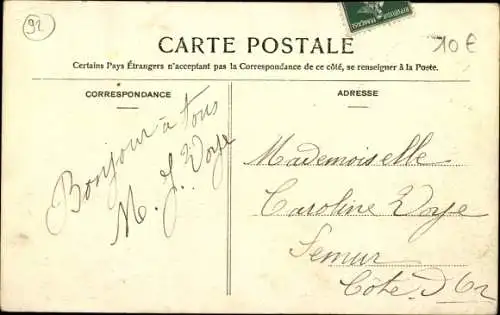 92
10 €
RÉPUBLIQUE FRANÇAISE
CARTE POSTALE
Certains Pays Étrangers n'acceptant pas la Correspondance de ce côté, se renseigner à la Poste.
CORRESPONDANCE
Bonjour à tous
M. J. Voye
ADRESSE
Mademoiselle
Caroline Voye
Semur
Côte d'Or